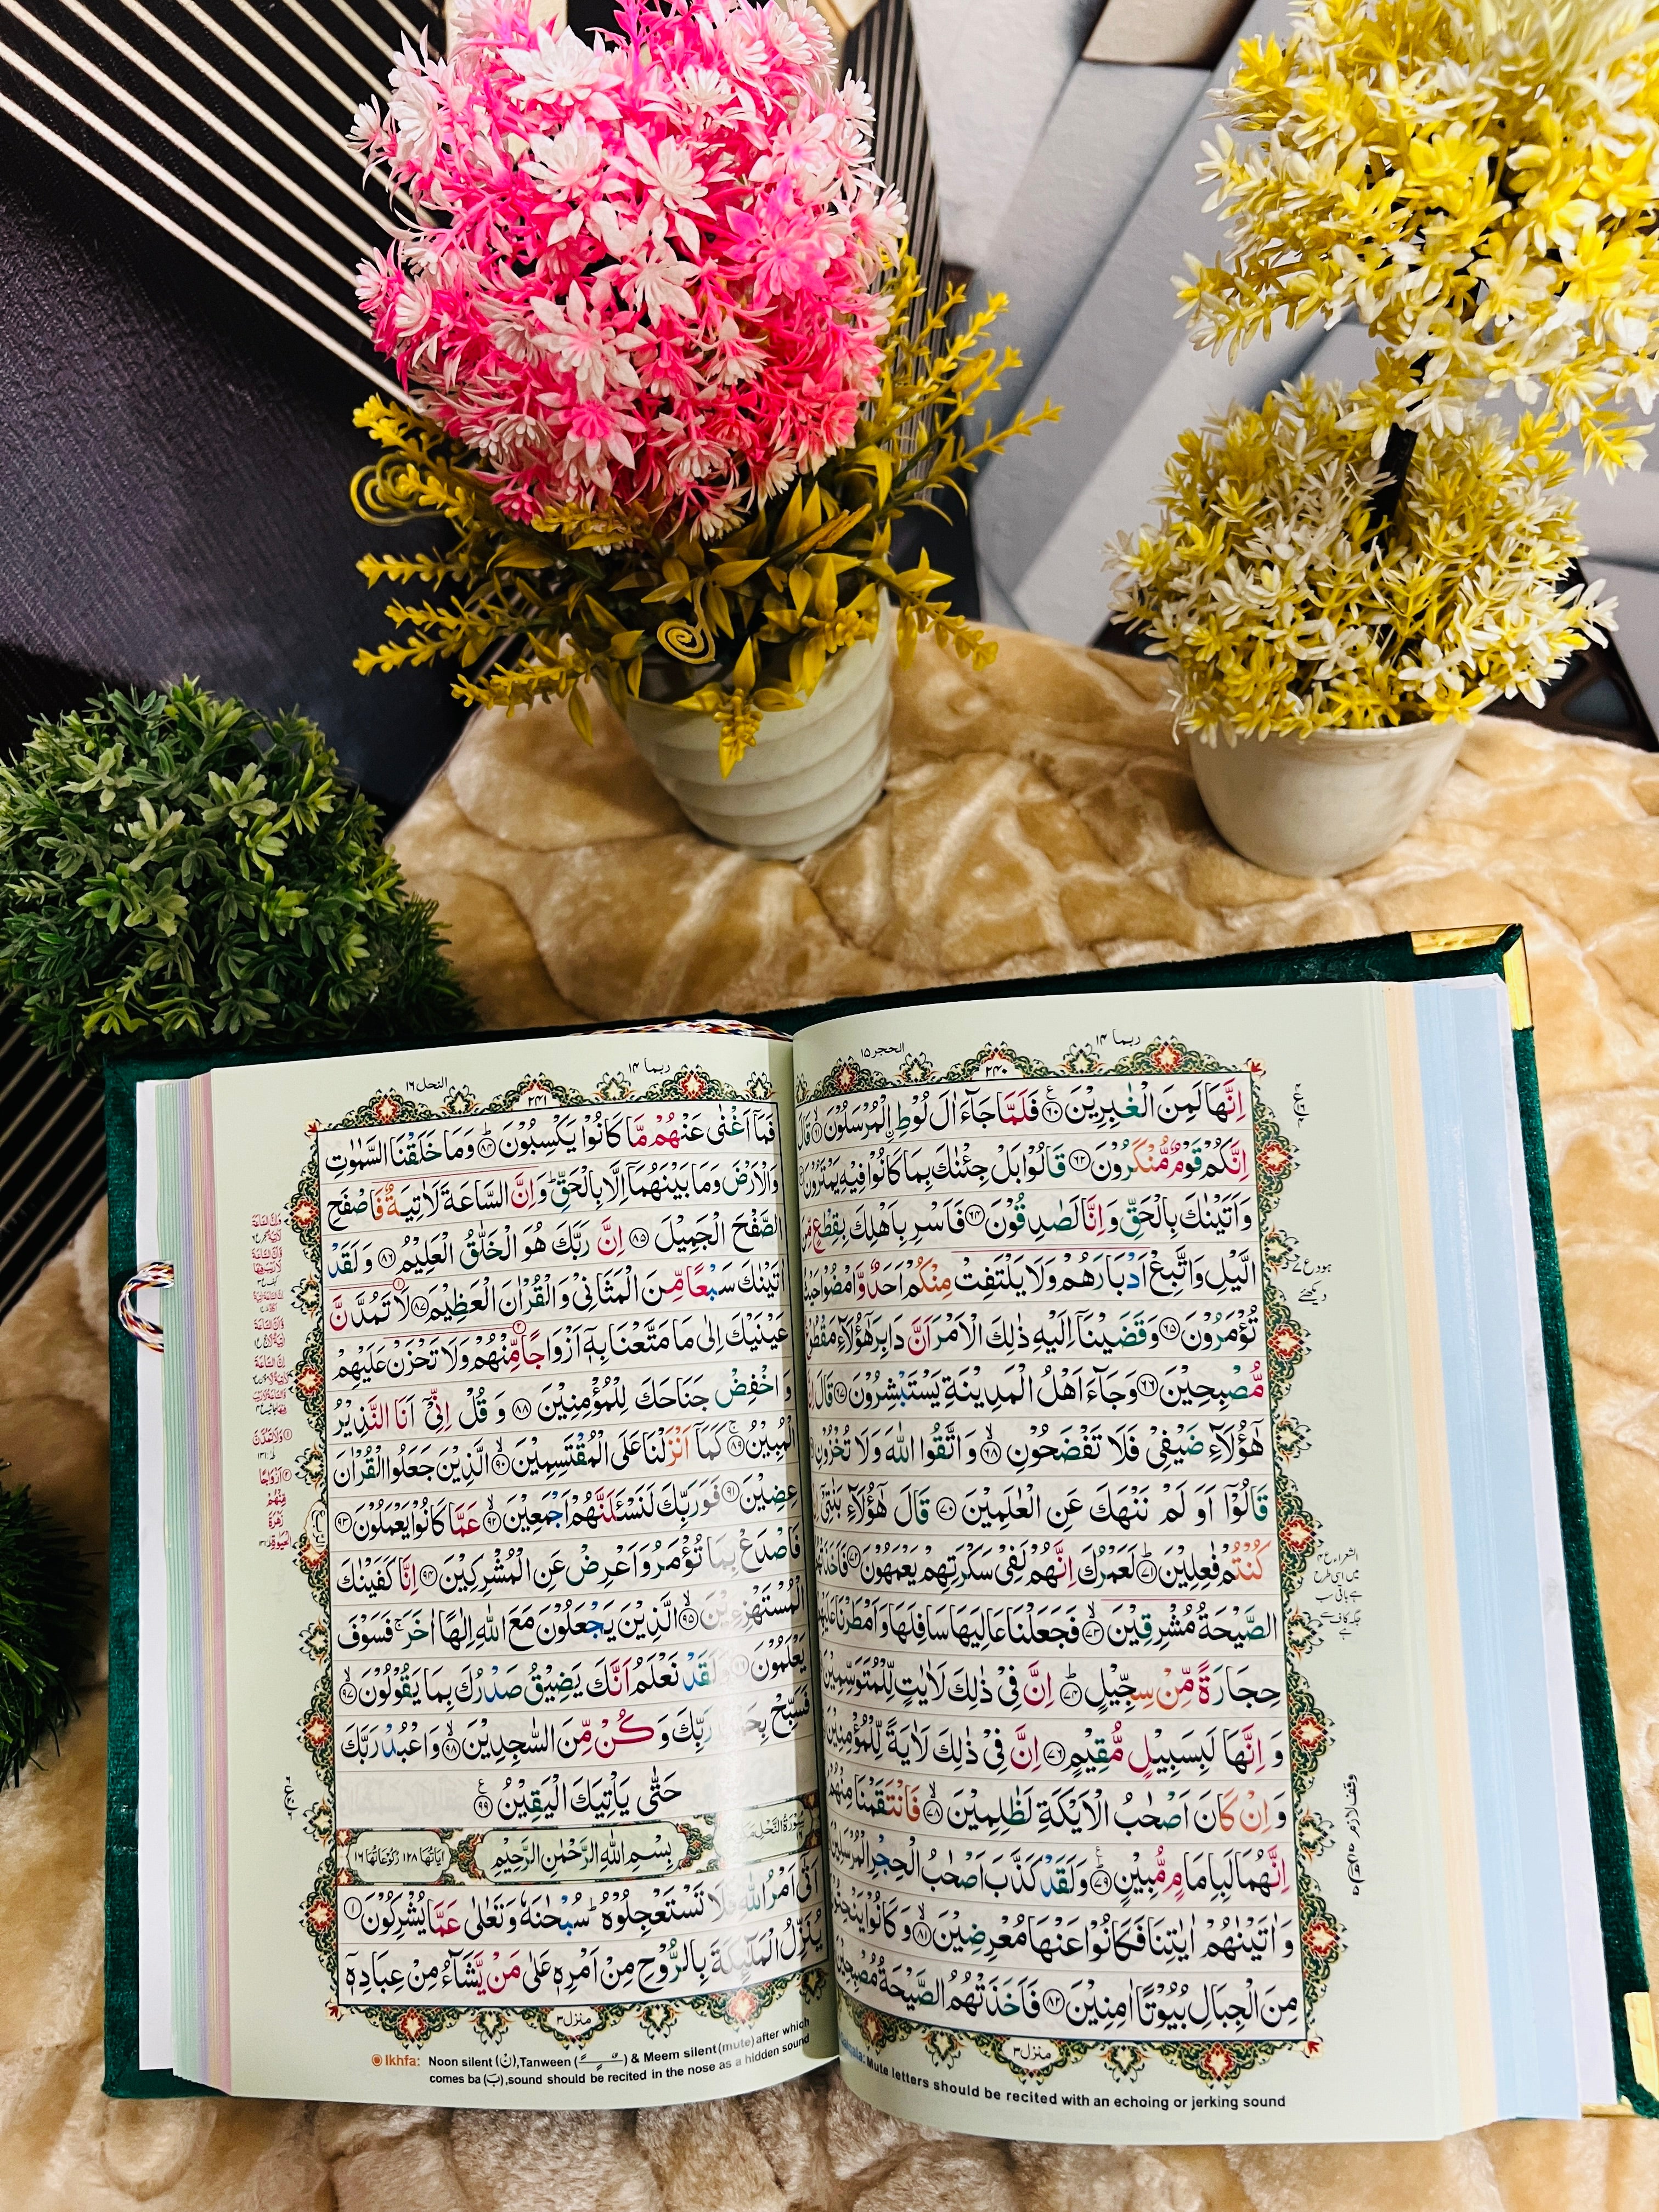 ربما ۱۴
۲۴۰
الحجر ۱۵
اِنَّهَا لَمِنَ الْغٰبِرِيْنَ ۶۰ فَلَمَّا جَآءَ اٰلَ لُوْطِ ِۨالْمُرْسَلُوْنَ ۶۱ قَالَ
اِنَّكُمْ قَوْمٌ مُّنْكَرُوْنَ ۶۲ قَالُوْا بَلْ جِئْنٰكَ بِمَا كَانُوْا فِيْهِ يَمْتَرُوْنَ
وَاَتَيْنٰكَ بِالْحَقِّ وَاِنَّا لَصٰدِقُوْنَ ۶۴ فَاَسْرِ بِاَهْلِكَ بِقِطْعٍ مِّنَ
الَّيْلِ وَاتَّبِعْ اَدْبَارَهُمْ وَلَا يَلْتَفِتْ مِنْكُمْ اَحَدٌ وَّامْضُوْا حَيْثُ
تُؤْمَرُوْنَ ۶۵ وَقَضَيْنَاۤ اِلَيْهِ ذٰلِكَ الْاَمْرَ اَنَّ دَابِرَ هٰۤؤُلَآءِ مَقْطُوْعٌ
مُّصْبِحِيْنَ ۶۶ وَجَآءَ اَهْلُ الْمَدِيْنَةِ يَسْتَبْشِرُوْنَ ۶۷ قَالَ اِنَّ
هٰۤؤُلَآءِ ضَيْفِيْ فَلَا تَفْضَحُوْنِ ۶۸ وَاتَّقُوا اللّٰهَ وَلَا تُخْزُوْنِ
قَالُوْۤا اَوَ لَمْ نَنْهَكَ عَنِ الْعٰلَمِيْنَ ۷۰ قَالَ هٰۤؤُلَآءِ بَنٰتِيْۤ
كُنْتُمْ فٰعِلِيْنَ ۷۱ لَعَمْرُكَ اِنَّهُمْ لَفِيْ سَكْرَتِهِمْ يَعْمَهُوْنَ ۷۲ فَاَخَذَتْهُمُ
الصَّيْحَةُ مُشْرِقِيْنَ ۷۳ فَجَعَلْنَا عَالِيَهَا سَافِلَهَا وَاَمْطَرْنَا عَلَيْهِمْ
حِجَارَةً مِّنْ سِجِّيْلٍ ۷۴ اِنَّ فِيْ ذٰلِكَ لَاٰيٰتٍ لِّلْمُتَوَسِّمِيْنَ
وَ اِنَّهَا لَبِسَبِيْلٍ مُّقِيْمٍ ۷۶ اِنَّ فِيْ ذٰلِكَ لَاٰيَةً لِّلْمُؤْمِنِيْنَ
وَ اِنْ كَانَ اَصْحٰبُ الْاَيْكَةِ لَظٰلِمِيْنَ ۷۸ فَانْتَقَمْنَا مِنْهُمْ
اِنَّهُمَا لَبِاِمَامٍ مُّبِيْنٍ ۷۹ وَلَقَدْ كَذَّبَ اَصْحٰبُ الْحِجْرِ الْمُرْسَلِيْنَ
وَاٰتَيْنٰهُمْ اٰيٰتِنَا فَكَانُوْا عَنْهَا مُعْرِضِيْنَ ۸۱ وَكَانُوْا يَنْحِتُوْنَ
مِنَ الْجِبَالِ بُيُوْتًا اٰمِنِيْنَ ۸۲ فَاَخَذَتْهُمُ الصَّيْحَةُ مُصْبِحِيْنَ
منزل۳
Mute letters should be recited with an echoing or jerking sound
ربما ۱۴
۲۴۱
النحل ۱۶
فَمَاۤ اَغْنٰى عَنْهُمْ مَّا كَانُوْا يَكْسِبُوْنَ ۸۴ وَمَا خَلَقْنَا السَّمٰوٰتِ
وَالْاَرْضَ وَمَا بَيْنَهُمَاۤ اِلَّا بِالْحَقِّ وَاِنَّ السَّاعَةَ لَاٰتِيَةٌ فَاصْفَحِ
الصَّفْحَ الْجَمِيْلَ ۸۵ اِنَّ رَبَّكَ هُوَ الْخَلّٰقُ الْعَلِيْمُ ۸۶ وَلَقَدْ
اٰتَيْنٰكَ سَبْعًا مِّنَ الْمَثَانِيْ وَالْقُرْاٰنَ الْعَظِيْمَ ۸۷ لَا تَمُدَّنَّ
عَيْنَيْكَ اِلٰى مَا مَتَّعْنَا بِهٖۤ اَزْوَاجًا مِّنْهُمْ وَلَا تَحْزَنْ عَلَيْهِمْ
وَ اخْفِضْ جَنَاحَكَ لِلْمُؤْمِنِيْنَ ۸۸ وَ قُلْ اِنِّيْۤ اَنَا النَّذِيْرُ
الْمُبِيْنُ ۸۹ كَمَاۤ اَنْزَلْنَا عَلَى الْمُقْتَسِمِيْنَ ۹۰ الَّذِيْنَ جَعَلُوا الْقُرْاٰنَ
عِضِيْنَ ۹۱ فَوَرَبِّكَ لَنَسْـَٔلَنَّهُمْ اَجْمَعِيْنَ ۹۲ عَمَّا كَانُوْا يَعْمَلُوْنَ ۹۳
فَاصْدَعْ بِمَا تُؤْمَرُ وَاَعْرِضْ عَنِ الْمُشْرِكِيْنَ ۹۴ اِنَّا كَفَيْنٰكَ
الْمُسْتَهْزِءِيْنَ ۹۵ الَّذِيْنَ يَجْعَلُوْنَ مَعَ اللّٰهِ اِلٰهًا اٰخَرَ فَسَوْفَ
يَعْلَمُوْنَ ۹۶ وَلَقَدْ نَعْلَمُ اَنَّكَ يَضِيْقُ صَدْرُكَ بِمَا يَقُوْلُوْنَ ۹۷
فَسَبِّحْ بِحَمْدِ رَبِّكَ وَ كُنْ مِّنَ السّٰجِدِيْنَ ۹۸ وَاعْبُدْ رَبَّكَ
حَتّٰى يَاْتِيَكَ الْيَقِيْنُ ۹۹
سُوْرَةُ النَّحْلِ
بِسْمِ اللّٰهِ الرَّحْمٰنِ الرَّحِيْمِ
اٰيَاتُهَا ۱۲۸ رُكُوْعَاتُهَا ۱۶
اَتٰۤى اَمْرُ اللّٰهِ فَلَا تَسْتَعْجِلُوْهُ سُبْحٰنَهٗ وَتَعٰلٰى عَمَّا يُشْرِكُوْنَ ۱
يُنَزِّلُ الْمَلٰٓئِكَةَ بِالرُّوْحِ مِنْ اَمْرِهٖ عَلٰى مَنْ يَّشَآءُ مِنْ عِبَادِهٖۤ
منزل۳
Ikhfa: Noon silent (نْ),Tanween (ـًـٍـٌ) & Meem silent(mute) after which
comes ba (ب),sound should be recited in the nose as a hidden sound